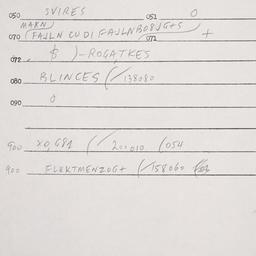 050 SVIRES 051 0
MAKN)
070 (FAJLN CU DI FAJLNB08JG+S 071 +
072 $ )-ROGATKES
080 BLINCES (/138080
090 0
900 X0,681 (/200010 (054
900 FLEKTMENZOG+ (/158060